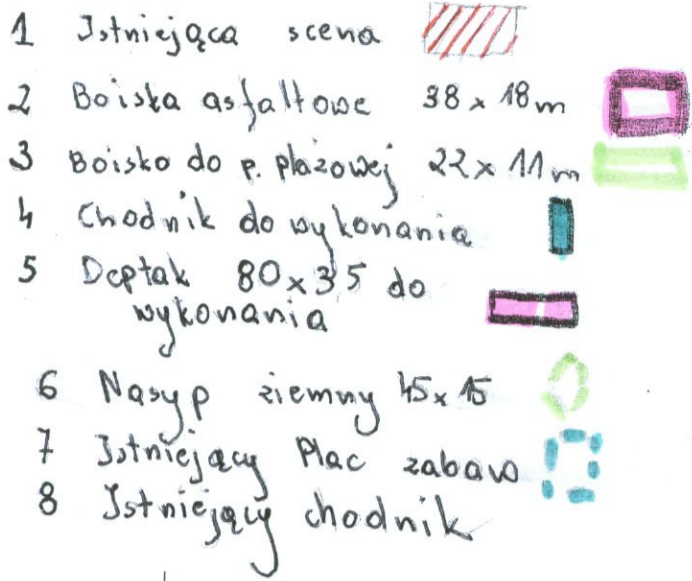 1 Istniejąca scena
2 Boiska asfaltowe 38 x 18 m
3 Boisko do p. plażowej 22 x 11 m
4 Chodnik do wykonania
5 Deptak 80 x 3,5 do
wykonania
6 Nasyp ziemny 45 x 15
7 Istniejący Plac zabaw
8 Istniejący chodnik